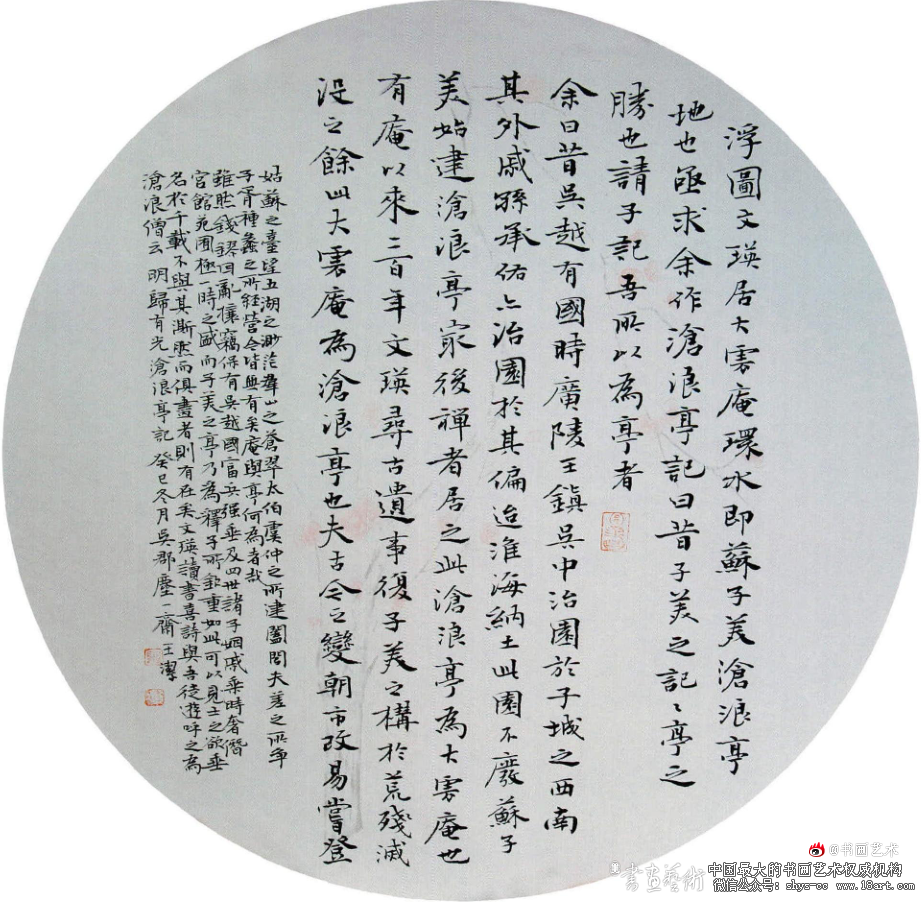 浮圖文瑛居大雲庵環水即蘇子美滄浪亭
地也亟求余作滄浪亭記曰昔子美之記〻亭之
勝也請子記吾所以為亭者
余曰昔吳越有國時廣陵王鎮吳中治園於子城之西南
其外戚孫承佑亦治園於其偏迨淮海納土此園不廢蘇子
美始建滄浪亭最後禪者居之此滄浪亭為大雲庵也
有庵以來二百年文瑛尋古遺事復子美之構於荒殘滅
沒之餘此大雲庵為滄浪亭也夫古今之變朝市改易嘗登
姑蘇之臺望五湖之渺茫群山之蒼翠太伯虞仲之所建闔閭夫差之所爭
子胥種蠡之所經營今皆無有矣庵與亭何為者哉
雖然錢鏐因亂攘竊保有吳越國富兵強垂及四世諸子姻戚乘時奢僭
宮館苑囿極一時之盛而子美之亭乃為釋子所欽重如此可以見士之欲垂
名於千載不與其澌然而俱盡者則有在矣文瑛讀書喜詩與吾徒遊呼之為
滄浪僧云 明歸有光滄浪亭記 癸巳冬月吳郡塵一齋王潔
@书画艺术
書畫藝術
中国最大的书画艺术权威机构
微信公众号：shys-cc www.18art.com